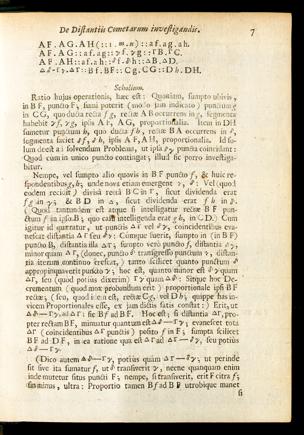 De Distantiis Cometarum investigandis. 7
AF.AG.AH (::1.m.n) :: af.ag.ah.
AF.AG :: af.ag :: γf.γg :: ΓB.ΓC.
AF.AH :: af.ah :: δf.δh :: ΔB.ΔD.
Δδ−Γγ.ΔΓ :: Bf.BF :: Cg.CG :: Dh.DH.
Scholium.
Ratio hujus operationis, hæc est: Quoniam, sumpto ubivis,
in BF, puncto F, sumi poterit (modo jam indicato) punctum g
in CG, quo ducta recta fg, rectæ AB occurrens in γ, segmenta
habebit γf, γg, ipsis AF, AG, proportionalia. Item in DH
sumetur punctum h, quo ducta fh, rectæ BA occurrens in δ,
segmenta faciet δf, δh, ipsis AF, AH, proportionalia. Id so-
lum deest ad solvendum Problema, ut ipsa δγ puncta coincidant:
Quod cum in unico puncto contingat, illud sic porro investiga-
bitur.
Nempe, vel sumpto alio quovis in BF puncto f, & huic re-
spondentibus g, h; unde novi etiam emergent γ, δ: Vel (quod
eodem recidit) divisâ rectâ BC in Γ, sicut dividenda erat
fg in γ; & BD in Δ, sicut dividenda erat fh in δ.
(Quod tantundem est atque si intelligatur rectæ BF pun-
ctum f in ipso B, quo casu intelligenda erat gh, in CD.) Cum
igitur id quæratur, ut punctis ΔΓ vel δγ, coincidentibus eva-
nescat distantia ΔΓ seu δγ: Cumque fuerit, sumpto in (in BF)
puncto B, distantia illa ΔΓ, sumpto vero puncto f, distantia δγ,
minor quam ΔΓ, (donec, puncto δ transgresso punctum γ, distan-
tia iterum continuo crescat,) tanto scilicet quanto punctum δ
appropinquaverit puncto γ; hoc est, quanto minor est δγ quam
ΔΓ, seu (quod potius dixerim) Γγ quam Δδ: Sitque hoc De-
crementum (quod mox probandum erit) proportionale ipsi BF
rectæ; (seu, quod idem est, rectæ Cg, vel Dh, quippe has in-
vicem Proportionales esse, ex jam dictis satis constat:) Erit, ut
Δδ−Γγ, ad ΔΓ: sic Bf ad BF. Hoc est; si distantia ΔΓ, pro-
pter rectam BF, minuatur quantum est Δδ−Γγ; evanescet tota
ΔΓ (coincidentibus ΔΓ punctis) posito f in F; sumpta scilicet
BF ad DF, in ea ratione qua est ΔΓ ad ΔΓ−δγ, seu potius
Δδ−Γγ.
(Dico autem Δδ−Γγ, potius quam ΔΓ−δγ, ut perinde
sit sive ita sumatur f, ut δ transiverit γ, necne quanquam enim
inde mutetur situs puncti F; nempe, si transiverit, erit F citra f;
sin minus, ultra: Proportio tamen Bf ad BF utrobique manet
si